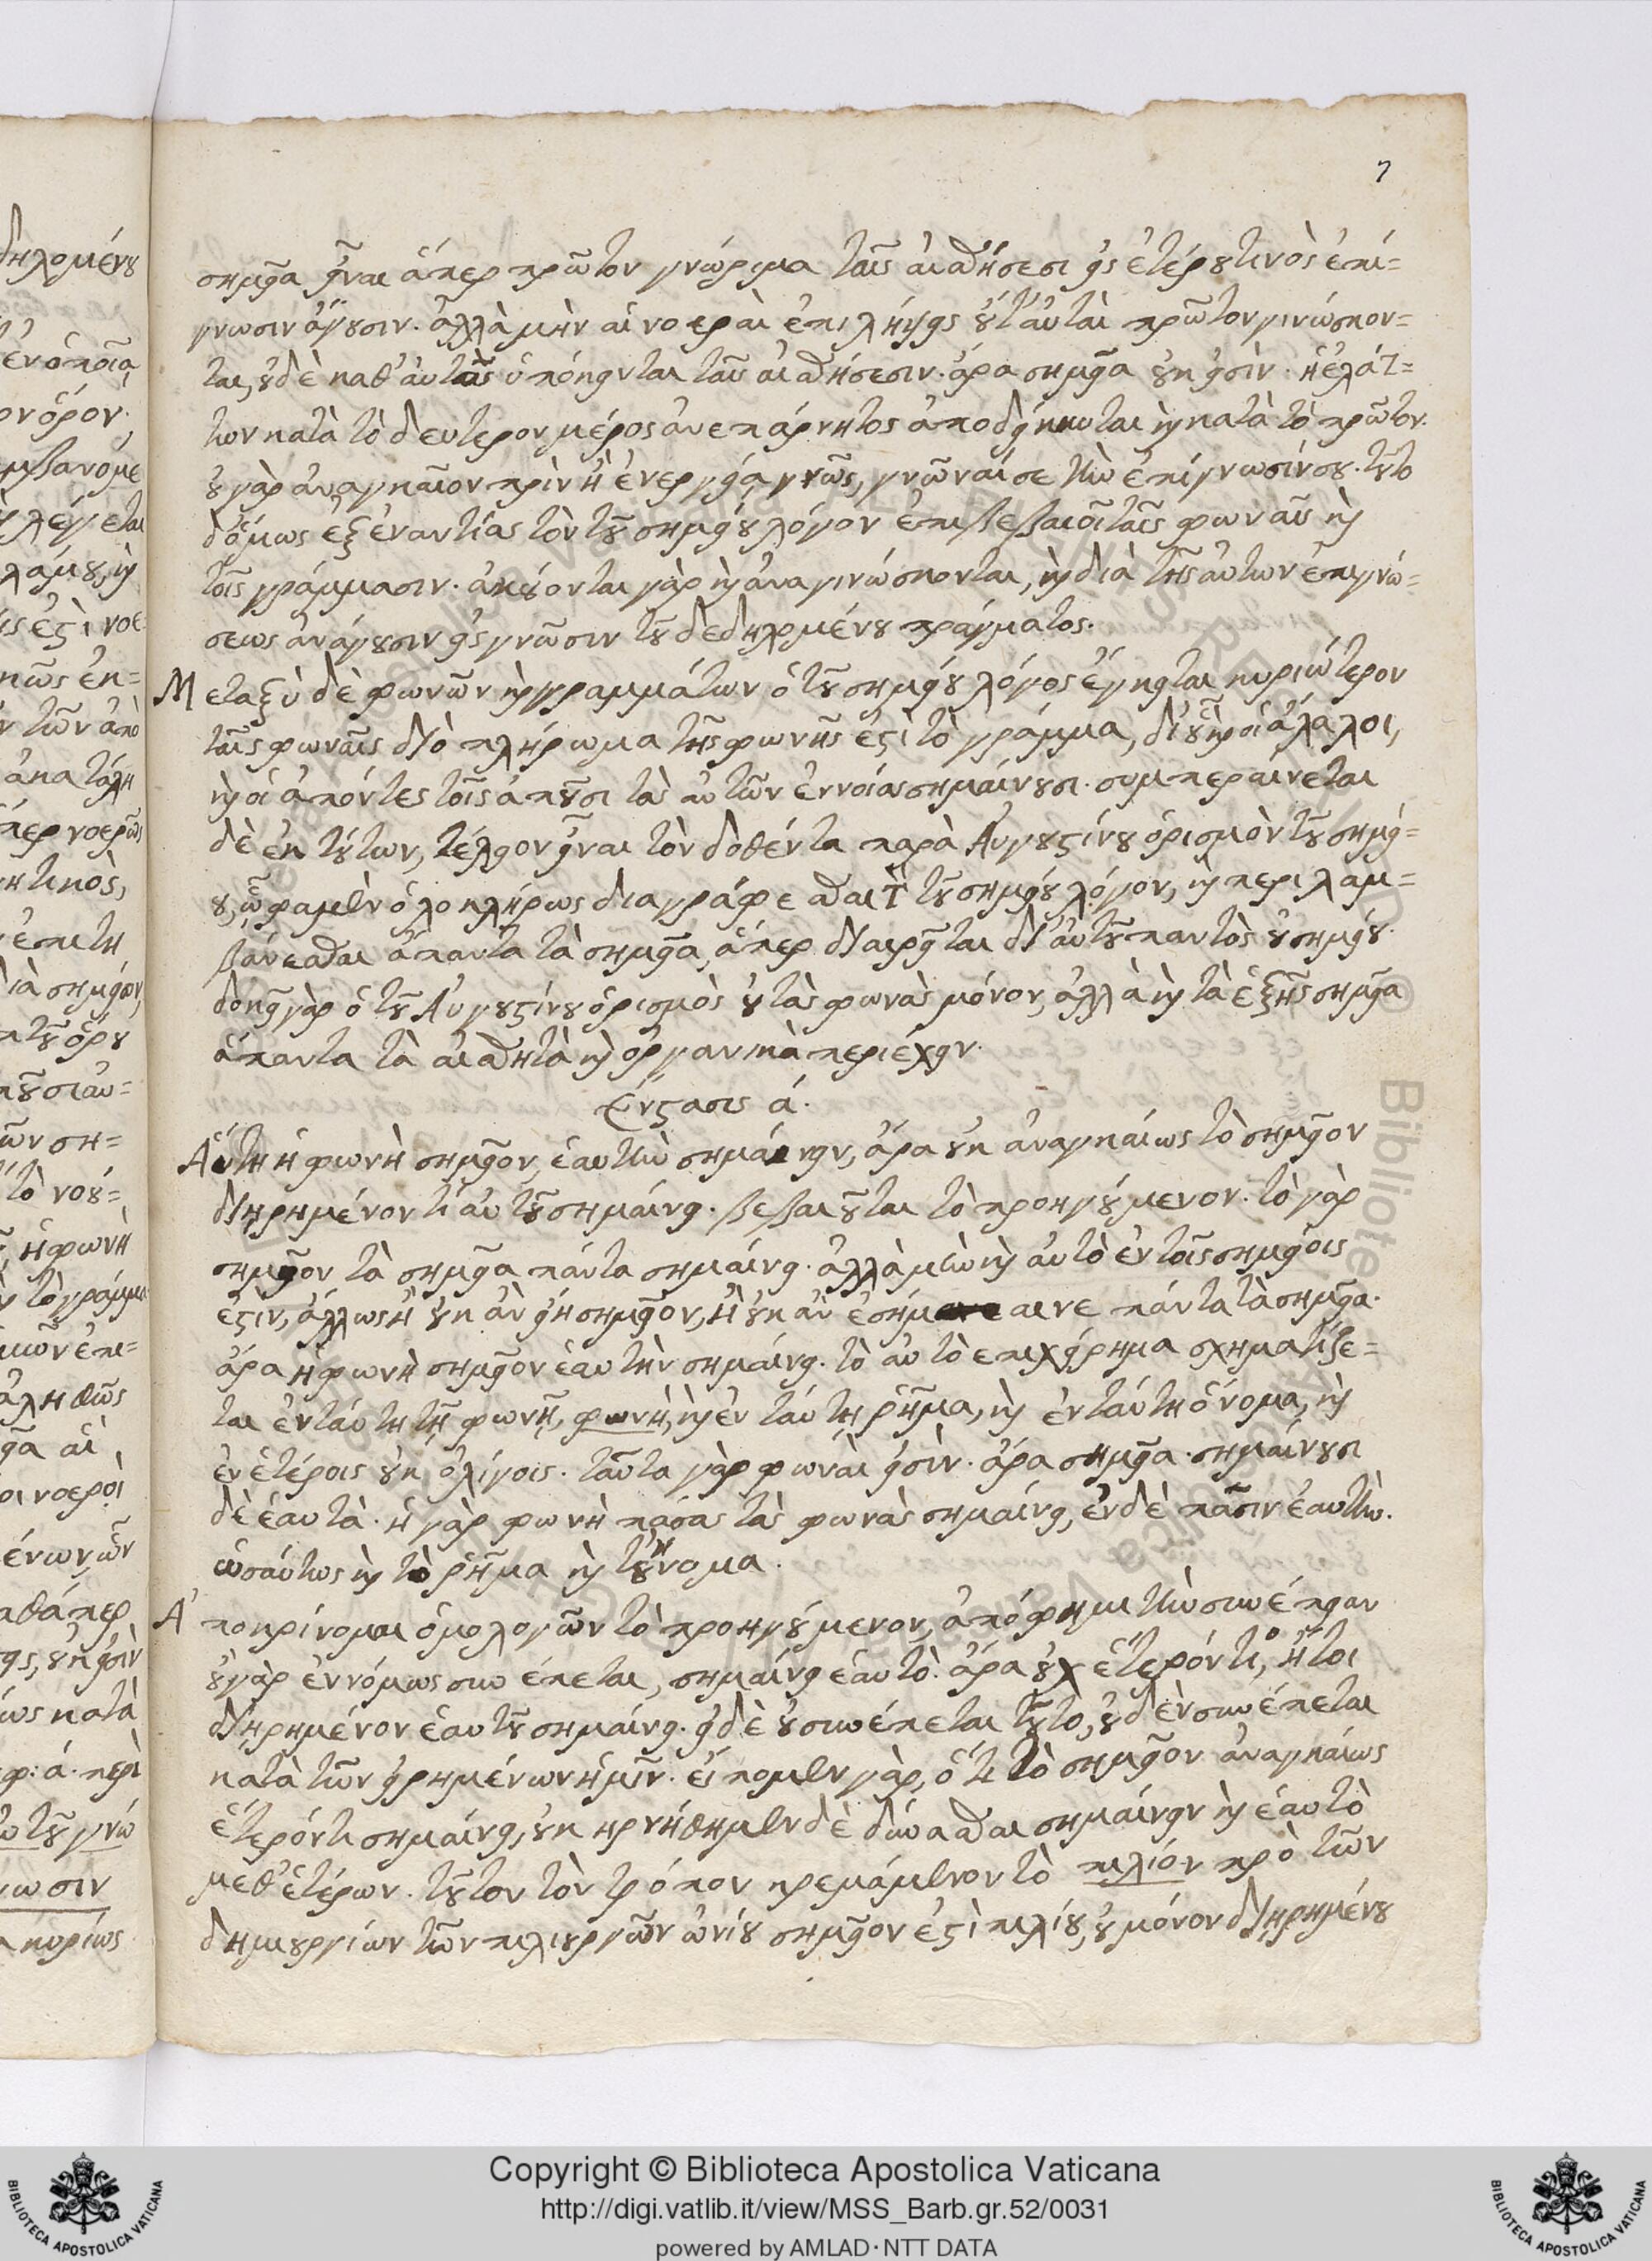 7
σημεῖα εἶναι ἅπερ πρῶτον γνώριμα ταῖς αἰσθήσεσι εἰς ἑτέρου τινὸς ἐπί=
γνωσιν ἄγουσιν. ἀλλὰ μὴν αἱ νοεραὶ ἐπιλήψεις οὔτ' αὐταὶ πρῶτον γινώσκον=
ται, οὐδὲ καθ' αὑτὰς ὑπόκεινται ταῖς αἰσθήσεσιν. ἄρα σημεῖα οὐκ εἰσίν. ἡ ἐλάτ=
των κατὰ τὸ δεύτερον μέρος ἀνεπάρνητος ἀποδείκνυται καὶ κατὰ τὸ πρῶτον.
οὐ γὰρ ἀναγκαῖον πρὶν ἢ ἐνεργείᾳ γνῷς, γνῶναί σε τὴν ἐπίγνωσίν σου. τοῦτο
δ' ὅμως ἐξ ἐναντίας τὸν τοῦ σημείου λόγον ἐπιβεβαιοῖ ταῖς φωναῖς καὶ
τοῖς γράμμασιν. ἀκούονται γὰρ καὶ ἀναγινώσκονται, καὶ διὰ τῆς αὐτῶν ἐπιγνώ=
σεως ἀνάγουσιν εἰς γνῶσιν τοῦ δεδηλομένου πράγματος.
Μεταξὺ δὲ φωνῶν καὶ γραμμάτων ὁ τοῦ σημείου λόγος ἔγκειται κυριώτερον
ταῖς φωναῖς διὸ πλήρωμα τῆς φωνῆς ἐστὶ τὸ γράμμα, δι' οὗ καὶ οἱ ἄλαλοι,
καὶ οἱ ἀπόντες τοῖς ἀποῦσι τὰς αὐτῶν ἐννοίας σημαίνουσι. συμπεραίνεται
δὲ ἐκ τούτων, τέλειον εἶναι τὸν δοθέντα παρὰ Αὐγουστίνου ὁρισμὸν τοῦ σημεί=
ου, ᾧ φαμὲν ὁλοκλήρως διαγράφεσθαι τ̀ τοῦ σημείου λόγον, καὶ περιλαμ=
βάνεσθαι ἅπαντα τὰ σημεῖα, ἅπερ διαιρεῖται δι' αὐτοῦ παντὸς οὐ σημείου.
δοκεῖ γὰρ ὁ τοῦ Αὐγουστίνου ὁρισμὸς οὐ τὰς φωνὰς μόνον, ἀλλὰ καὶ τὰ ἑξῆς σημεῖα
ἅπαντα τὰ αἰσθητὰ καὶ ὀργανικὰ περιέχειν.
Ἔνστασις ά.
Αὕτη ἡ φωνὴ σημεῖον, ἑαυτὴν σημαίνειν, ἄρα οὐκ ἀναγκαίως τὸ σημεῖον
διῃρημένον τὶ αὐτοῦ σημαίνει. βεβαιοῦται τὸ προηγούμενον. τὸ γὰρ
σημεῖον τὰ σημεῖα πάντα σημαίνει. ἀλλὰ μὴν καὶ αὐτὸ ἐν τοῖς σημείοις
ἐστιν, ἄλλως ἢ οὐκ ἂν εἴη σημεῖον, ἢ οὐκ ἂν ἐσήμαινε πάντα τὰ σημεῖα.
ἄρα ἡ φωνὴ σημεῖον ἑαυτὴν σημαίνει. τὸ αὐτὸ ἐπιχείρημα σχηματίζε=
ται ἐν ταύτῃ τῇ φωνῇ, φωνὴ, καὶ ἐν ταύτῃ ῥῆμα, καὶ ἐν ταύτῃ ὄνομα, καὶ
ἐν ἑτέροις οὐκ ὀλίγοις. ταῦτα γὰρ φωναὶ εἰσὶν. ἄρα σημεῖα. σημαίνουσι
δὲ ἑαυτὰ. ἡ γὰρ φωνὴ πάσας τὰς φωνὰς σημαίνει, ἐν δὲ πᾶσιν ἑαυτὴν.
ὡσαύτως καὶ τὸ ῥῆμα καὶ τοὔνομα.
Ἀποκρίνομαι ὁμολογῶν τὸ προηγούμενον, ἀπόφημι τὴν συνέπειαν
οὐ γὰρ ἐννόμως συνέπεται, σημαίνει ἑαυτὸ. ἄρα οὐχ ἕτερόν τι, ἤτοι
διῃρημένον ἑαυτοῦ σημαίνει. εἰ δὲ οὐ συνέπεται τοῦτο, οὐδὲν συνέπεται
κατὰ τῶν εἰρημένων ἡμῖν. εἴπομεν γὰρ, ὅτι τὸ σημεῖον ἀναγκαίως
ἕτερόν τι σημαίνει, οὐκ ἠρνήθημεν δὲ δύνασθαι σημαίνειν καὶ ἑαυτὸ
μεθ' ἑτέρων. τοῦτον τὸν τρόπον κρεμάμενον τὸ πιλίον πρὸ τῶν
δημιουργίων τῶν πιλιουργῶν ὠνίου σημεῖον ἐστὶ πιλίου, οὐ μόνον διῃρημένου
Copyright © Biblioteca Apostolica Vaticana
http://digi.vatlib.it/view/MSS_Barb.gr.52/0031
powered by AMLAD·NTT DATA